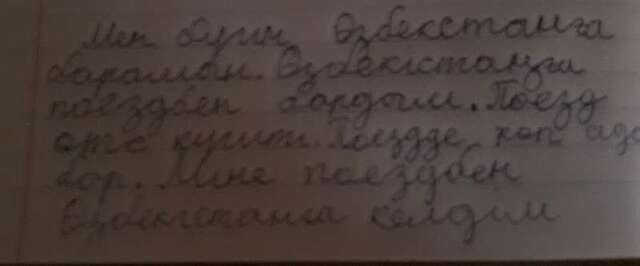 Мен бугин Өзбекстанга
бараман. Өзбекистанга
поездбен бардым. Поезд
Поездде көп
бар. Мине поездбен
Өзбекистанга келдим